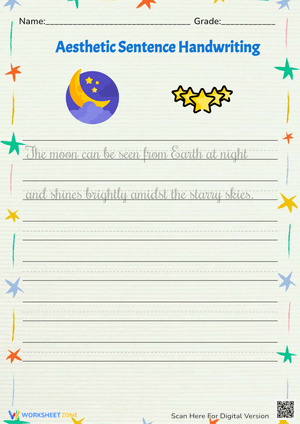 Name:___________________________ Grade:__________
Aesthetic Sentence Handwriting
The moon can be seen from Earth at night
and shines brightly amidst the starry skies.
WORKSHEETZONE
Scan Here For Digital Version